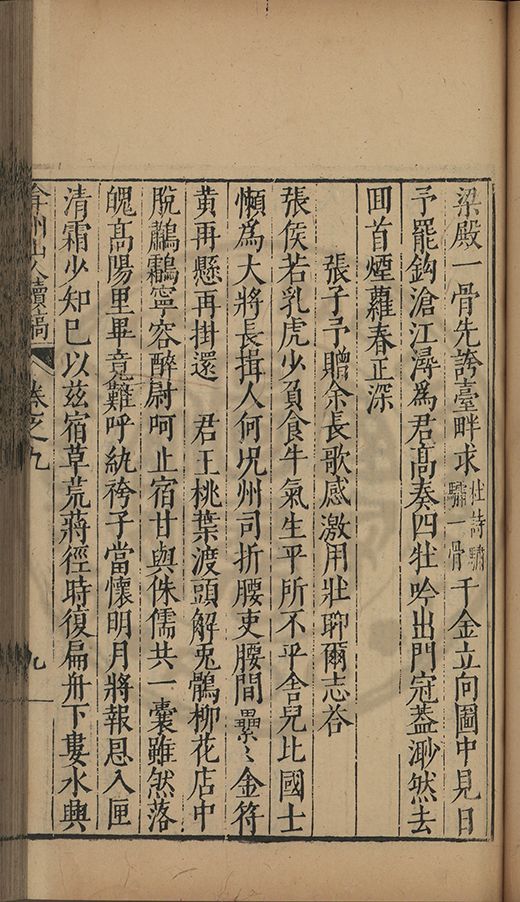 梁殿一骨先誇臺畔求杜詩驌驦一骨千金立向圖中見日
予罷鈎滄江潯爲君高奏四牡吟出門冠蓋渺然去
囬首煙蘿春正深
張子予贈余長歌感激用壯聊爾志荅
張侯若乳虎少負食牛氣生平所不平舎兒比國士
懶爲大將長揖人何况州司折腰吏腰間纍〻金符
黄再懸再掛還 君王桃葉渡頭解兎鶻柳花店中
脫鸘鷫寧容醉尉呵止宿甘與侏儒共一囊雖然落
魄高陽里畢竟難呼紈袴子當懷明月將報恩入匣
清霜少知已以兹宿草荒蔣徑時復扁舟下婁水興
弇州山人續稿 卷之九 九